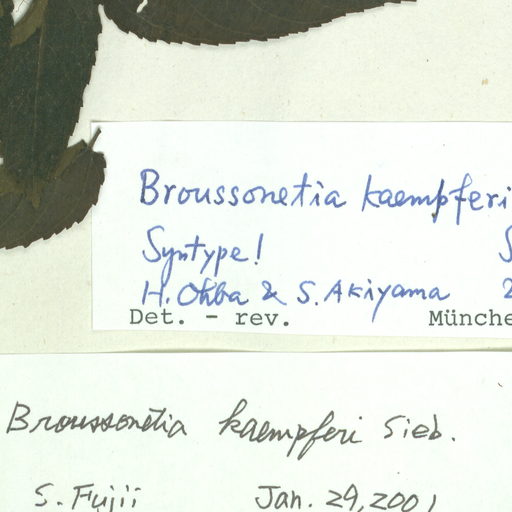 Broussonetia kaempferi
Syntype! S
H. Ohba & S. Akiyama 2
Det. - rev. Münche
Broussonetia kaempferi Sieb.
S. Fujii Jan. 29, 2001